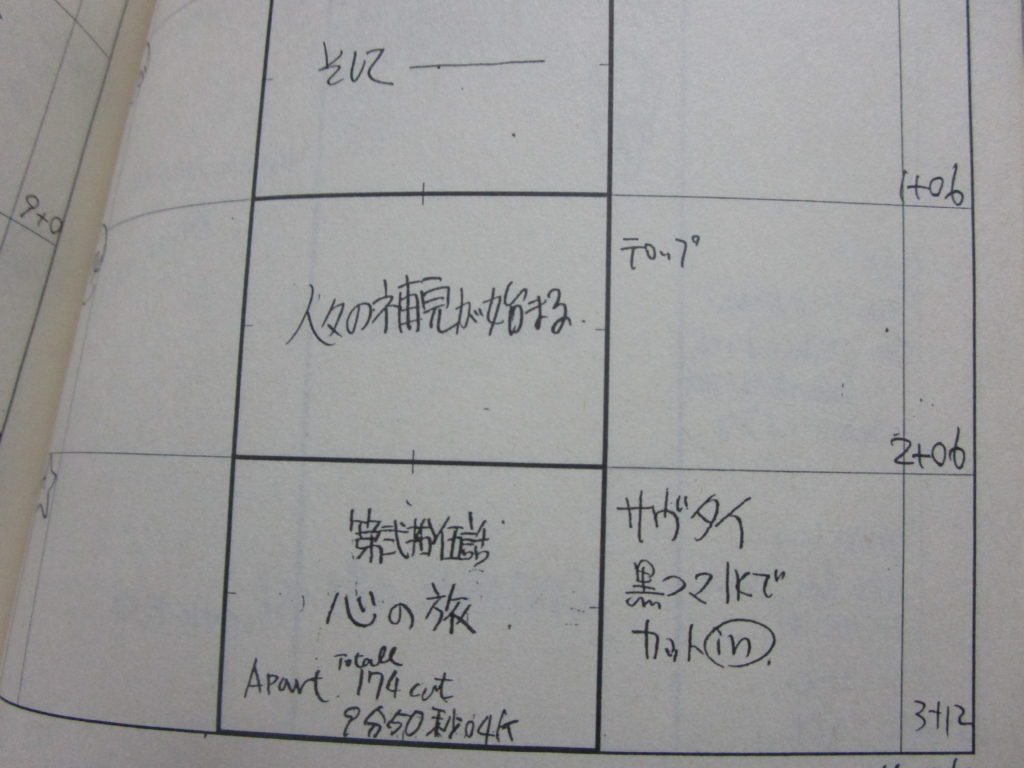 そして ―――
1+06
9+0
テロップ
人々の補完が始まる.
2+06
第弐拾伍話
心の旅.
Totall
Apart. 174 cut
9分50秒04k
サヴタイ
黒コマ1Kで
カットin.
3+12